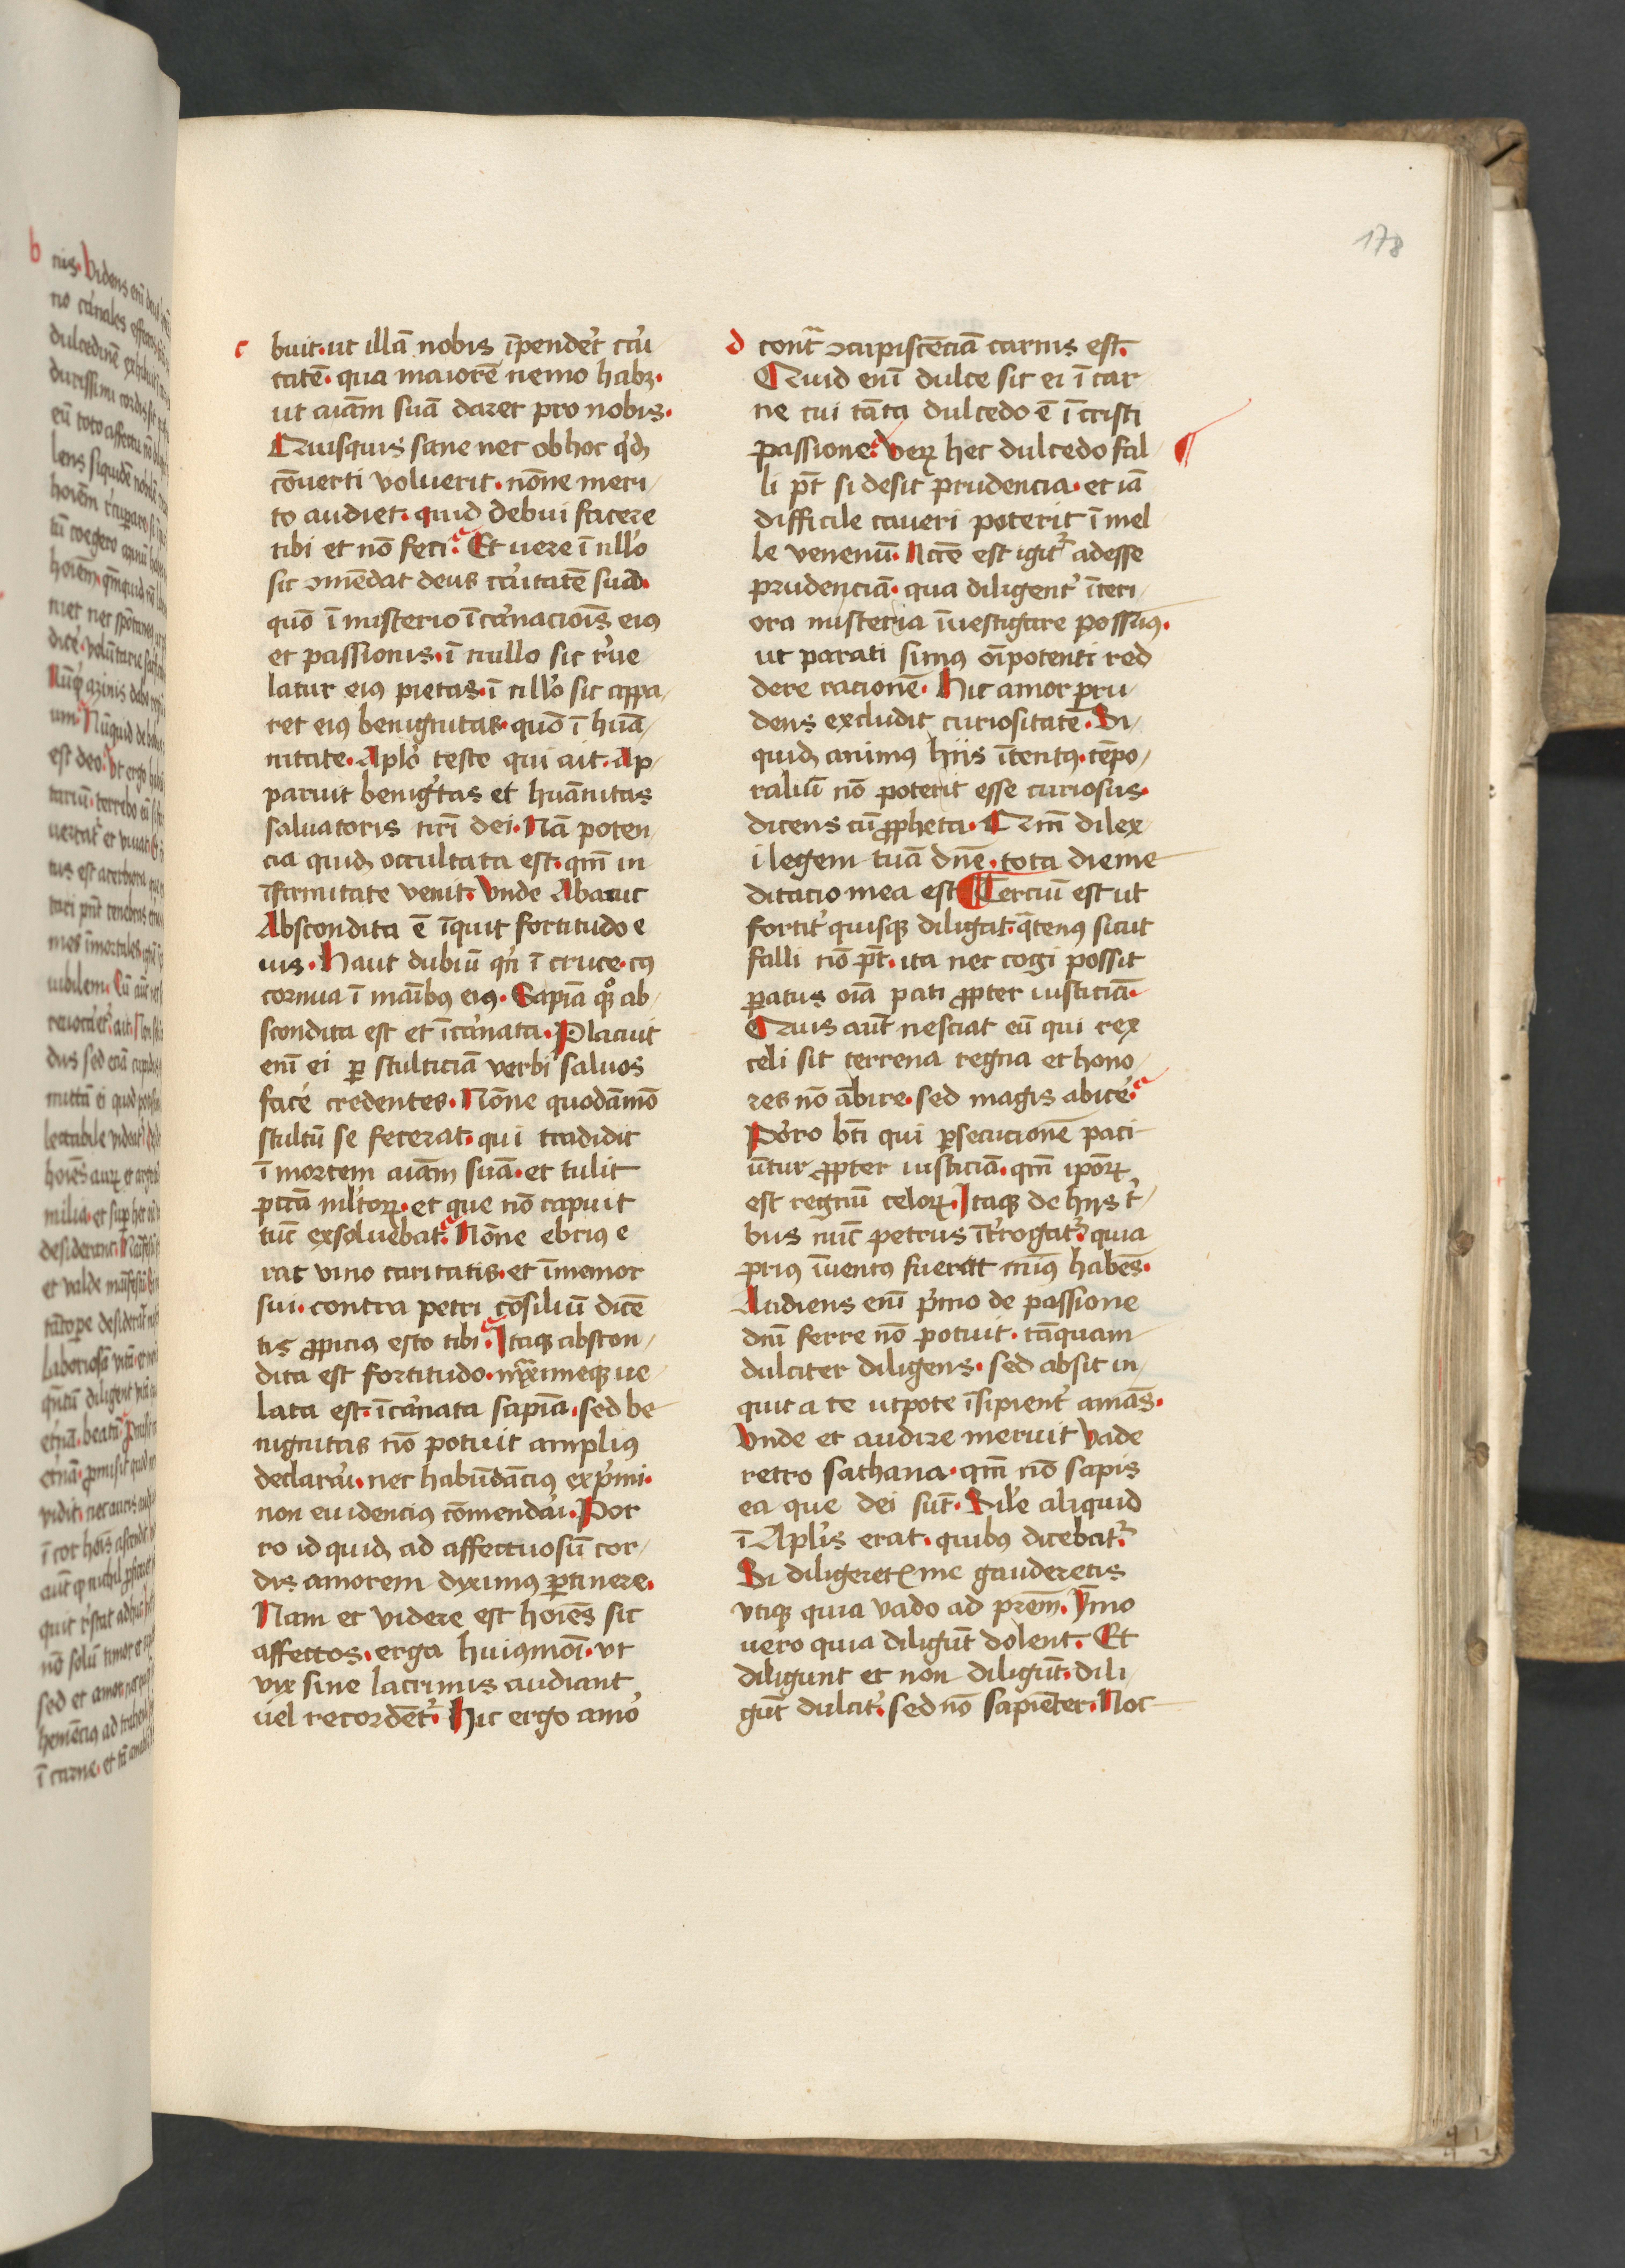 178
c
buit· ut illā nobis īpendet̓ cari
tatē· qua maiorē nemo habꝫ·
ut aīam suā daret pro nobis·
Quisquis sane nec ob hoc qd̓
cōuerti voluerit· nōne meri
to audiet· quid debui facere
tibi et nō feci? Et uere ī nllo̓
sic ꝯmēdat deus car̓itatē suā·
quō ī misterio īcar̓nacioīs eiꝰ
et passionis· ī nullo sic r̓ue
latur eiꝰ pietas· ī nllo̓ sic appa
ret eiꝰ benignitas· quō ī huā
nitate· Aplo̓ teste qui ait· Ap
paruit benigͥtas et huānitas
saluatoris nr̄i dei· Nā poten
cia quidē occultata est· qm̄ in
īfirmitate venit· Vnde Abacuc
Abscondita ē īquit fortitudo e
ius· Haut dubiū qn̄ ī cruce· cꝰ
cornua ī maībꝰ eiꝰ· Sapīa qͦqꝫ ab
scondita est et īcar̓nata· Placuit
enī ei ꝑ stulticiā verbi saluos
facē credentes· Nōne quodāmō
stultū se fecerat· qui tradidit
ī mortem aīam suā· et tulit
pctā ml̓torꝝ· et que nō rapuit
tūc exsoluebat? Nōne ebriꝰ e
rat vino caritatis· et īmemor
sui· contra petri cōsiliū dicē
tis ꝓpiciꝰ esto tibi? Itaqꝫ abscon
dita est fortitudo· maximeqꝫ ue
lata est· īcar̓nata sapīa· sed be
nignitas nō potuit ampliꝰ
declarar̓i· nec habūdāciꝰ exp̓mi·
non euidenciꝰ cōmendar̓i· Por
ro id quidē ad affectuosū cor
dis amorem dyximꝰ ꝑtinere·
Nam et videre est hoīes sic
affectos· erga huiꝰmoī· vt
vix sine lacrimis audiant
uel recordēt᷑· Hic ergo amo̓
d
contᷓ ꝯcupiscēciā carnis est·
Quid enī dulce sit ei ī car
ne cui tāta dulcedo ē ī cristi
passione? Verꝝ hec dulcedo fal
li pt̄ si desit prudencia· et iā
difficile caueri poterit ī mel
le venenū· Ncc̄e est igit᷑ adesse
prudenciā· qua diligent̓ īteri
ora misteria īuestigare possimꝰ·
ut parati simꝰ oīpotenti red
dere racionē· Hic amor pru
dens excludit curiositatē· Si
quidē animꝰ hiis ītentꝰ· tēpo
raliū nō poterit esse curiosus·
dicens cū ꝓpheta· Qm̄ dilex
i legem tuā dn̄e· tota die me
ditacio mea est ¶ Terciū est ut
fortit̓ quisqꝫ diligat· qᷓtenꝰ sicut
falli nō pt̄· ita nec cogi possit
ꝑatus oīa pati ꝓpter iusticiā·
Quis aut̄ nesciat eū qui rex
celi sit terrena regna et hono
res nō ābire· sed magis abicē?
Porro bt̄i qui ꝑsecucionē paci
ūtur ꝓpter iusticiā· qm̄ ipōrꝝ
est regnū celorꝝ· Itaqꝫ de hijs t̓
bus nūc petrus īt̓rogat᷑· quia
priꝰ īuentꝰ fuerat minꝰ habēs·
Audiens enī p̓mo de passione
dnī ferre nō potuit· tāquam
dulciter diligens· sed absit in
quit a te utpote īsipient̓ amās·
Vnde et audire meruit vade
retro sathana· qm̄ nō sapis
ea que dei sūt· Sil̓e aliquid
ī Aplis̓ erat· quibꝰ dicebat᷑·
Si diligeretꝭ me gauderetis
vtiqꝫ quia vado ad prēm· Ymo
uero quia diligūt dolent· Et
diligunt et non diligūt· dili
gūt dulcit̓· sed nō sapiēter· Noc